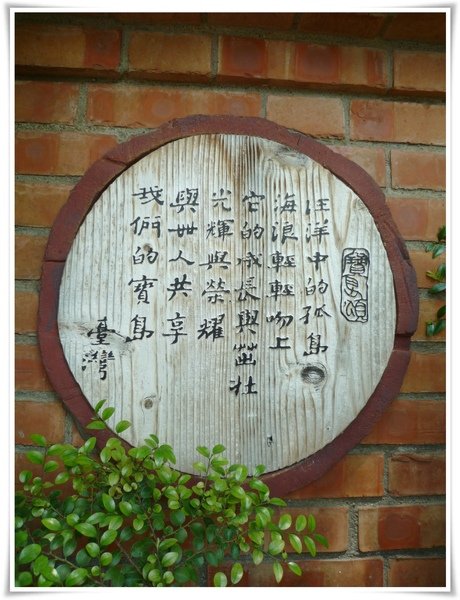 寶島頌
汪洋中的孤島
海浪輕輕吻上
它的成長與茁壯
光輝與榮耀
與世人共享
我們的寶島
臺灣